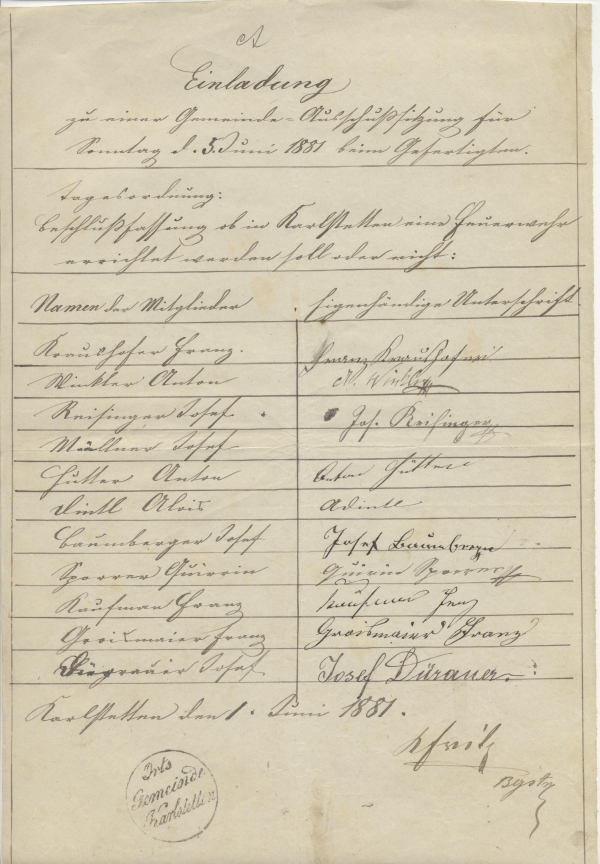 Einladung
zu einer Gemeinde-Ausschußsitzung für
Sonntag d. 5. Juni 1881 beim Gefertigten.
Tagesordnung:
Beschlußfassung ob in Karlstetten eine Feuerwehr
errichtet werden soll oder nicht:
Namen der Mitglieder Eigenhändige Unterschrift.
Kraushofer Franz. Franz Kraushofer
Winkler Anton A. Winkler
Reisinger Josef Jos. Reisinger
Müllner Josef
Hutter Anton Anton Hutter
Dintl Alois ADintl
Baumberger Josef Josef Baumberger
Sporrer Quirin Quirin Sporrer
Kaufman Franz
Groißmaier Franz Groißmaier Franz
Josef Josef Dürauer
Karlstetten den 1. Juni 1881.
Bgstr
Orts
Gemeinde
Karlstetten